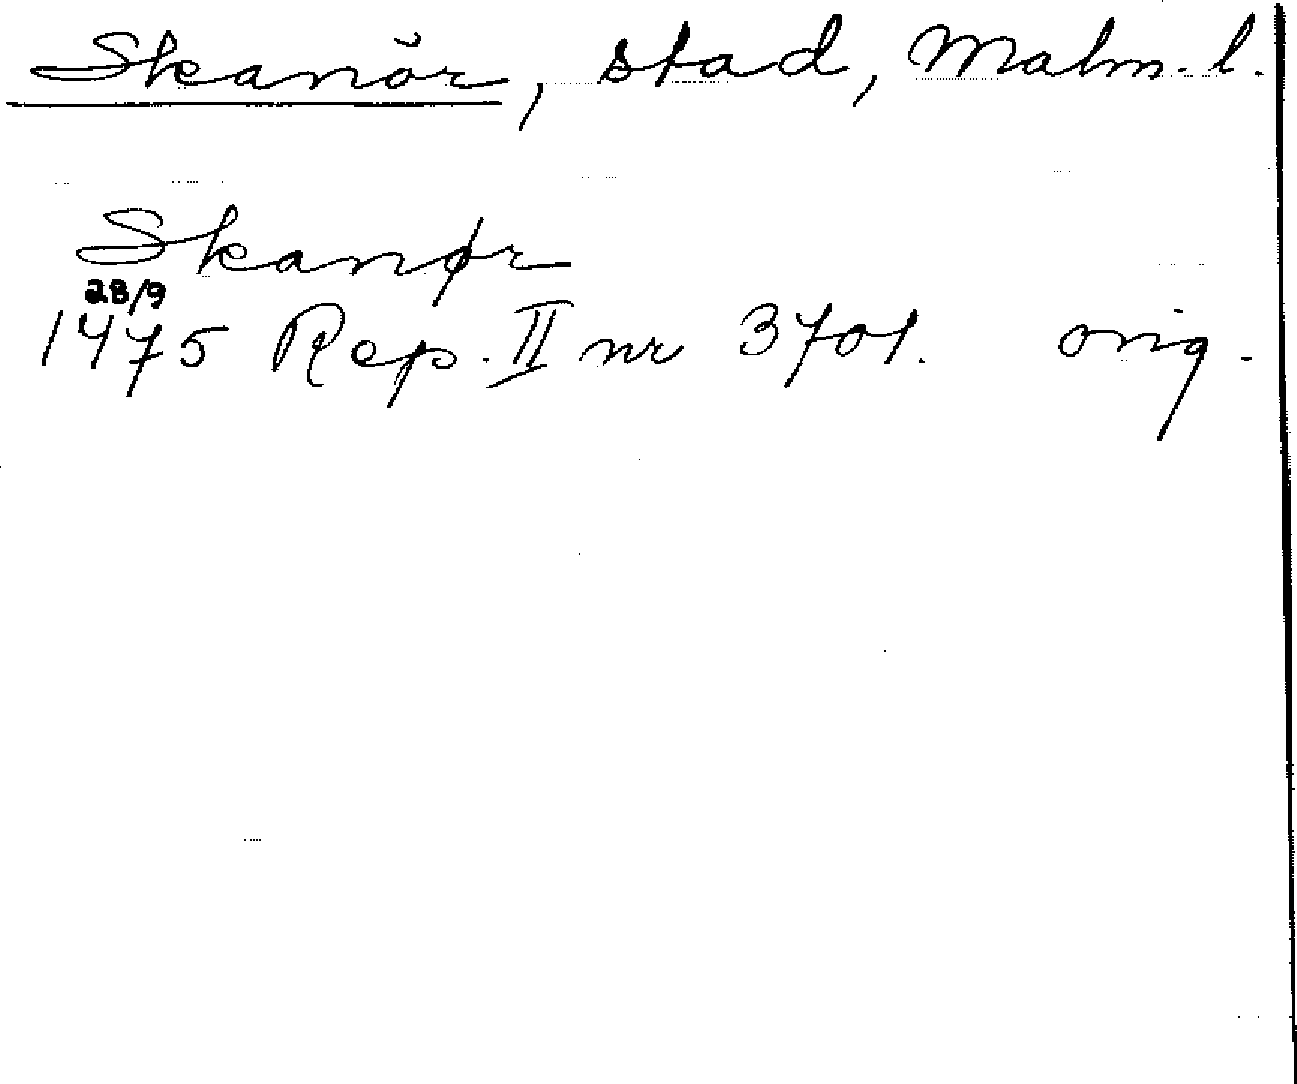 Skanör, stad, Malm. l.
Skanør
28/9
1475 Rep. II nr 3701. orig.